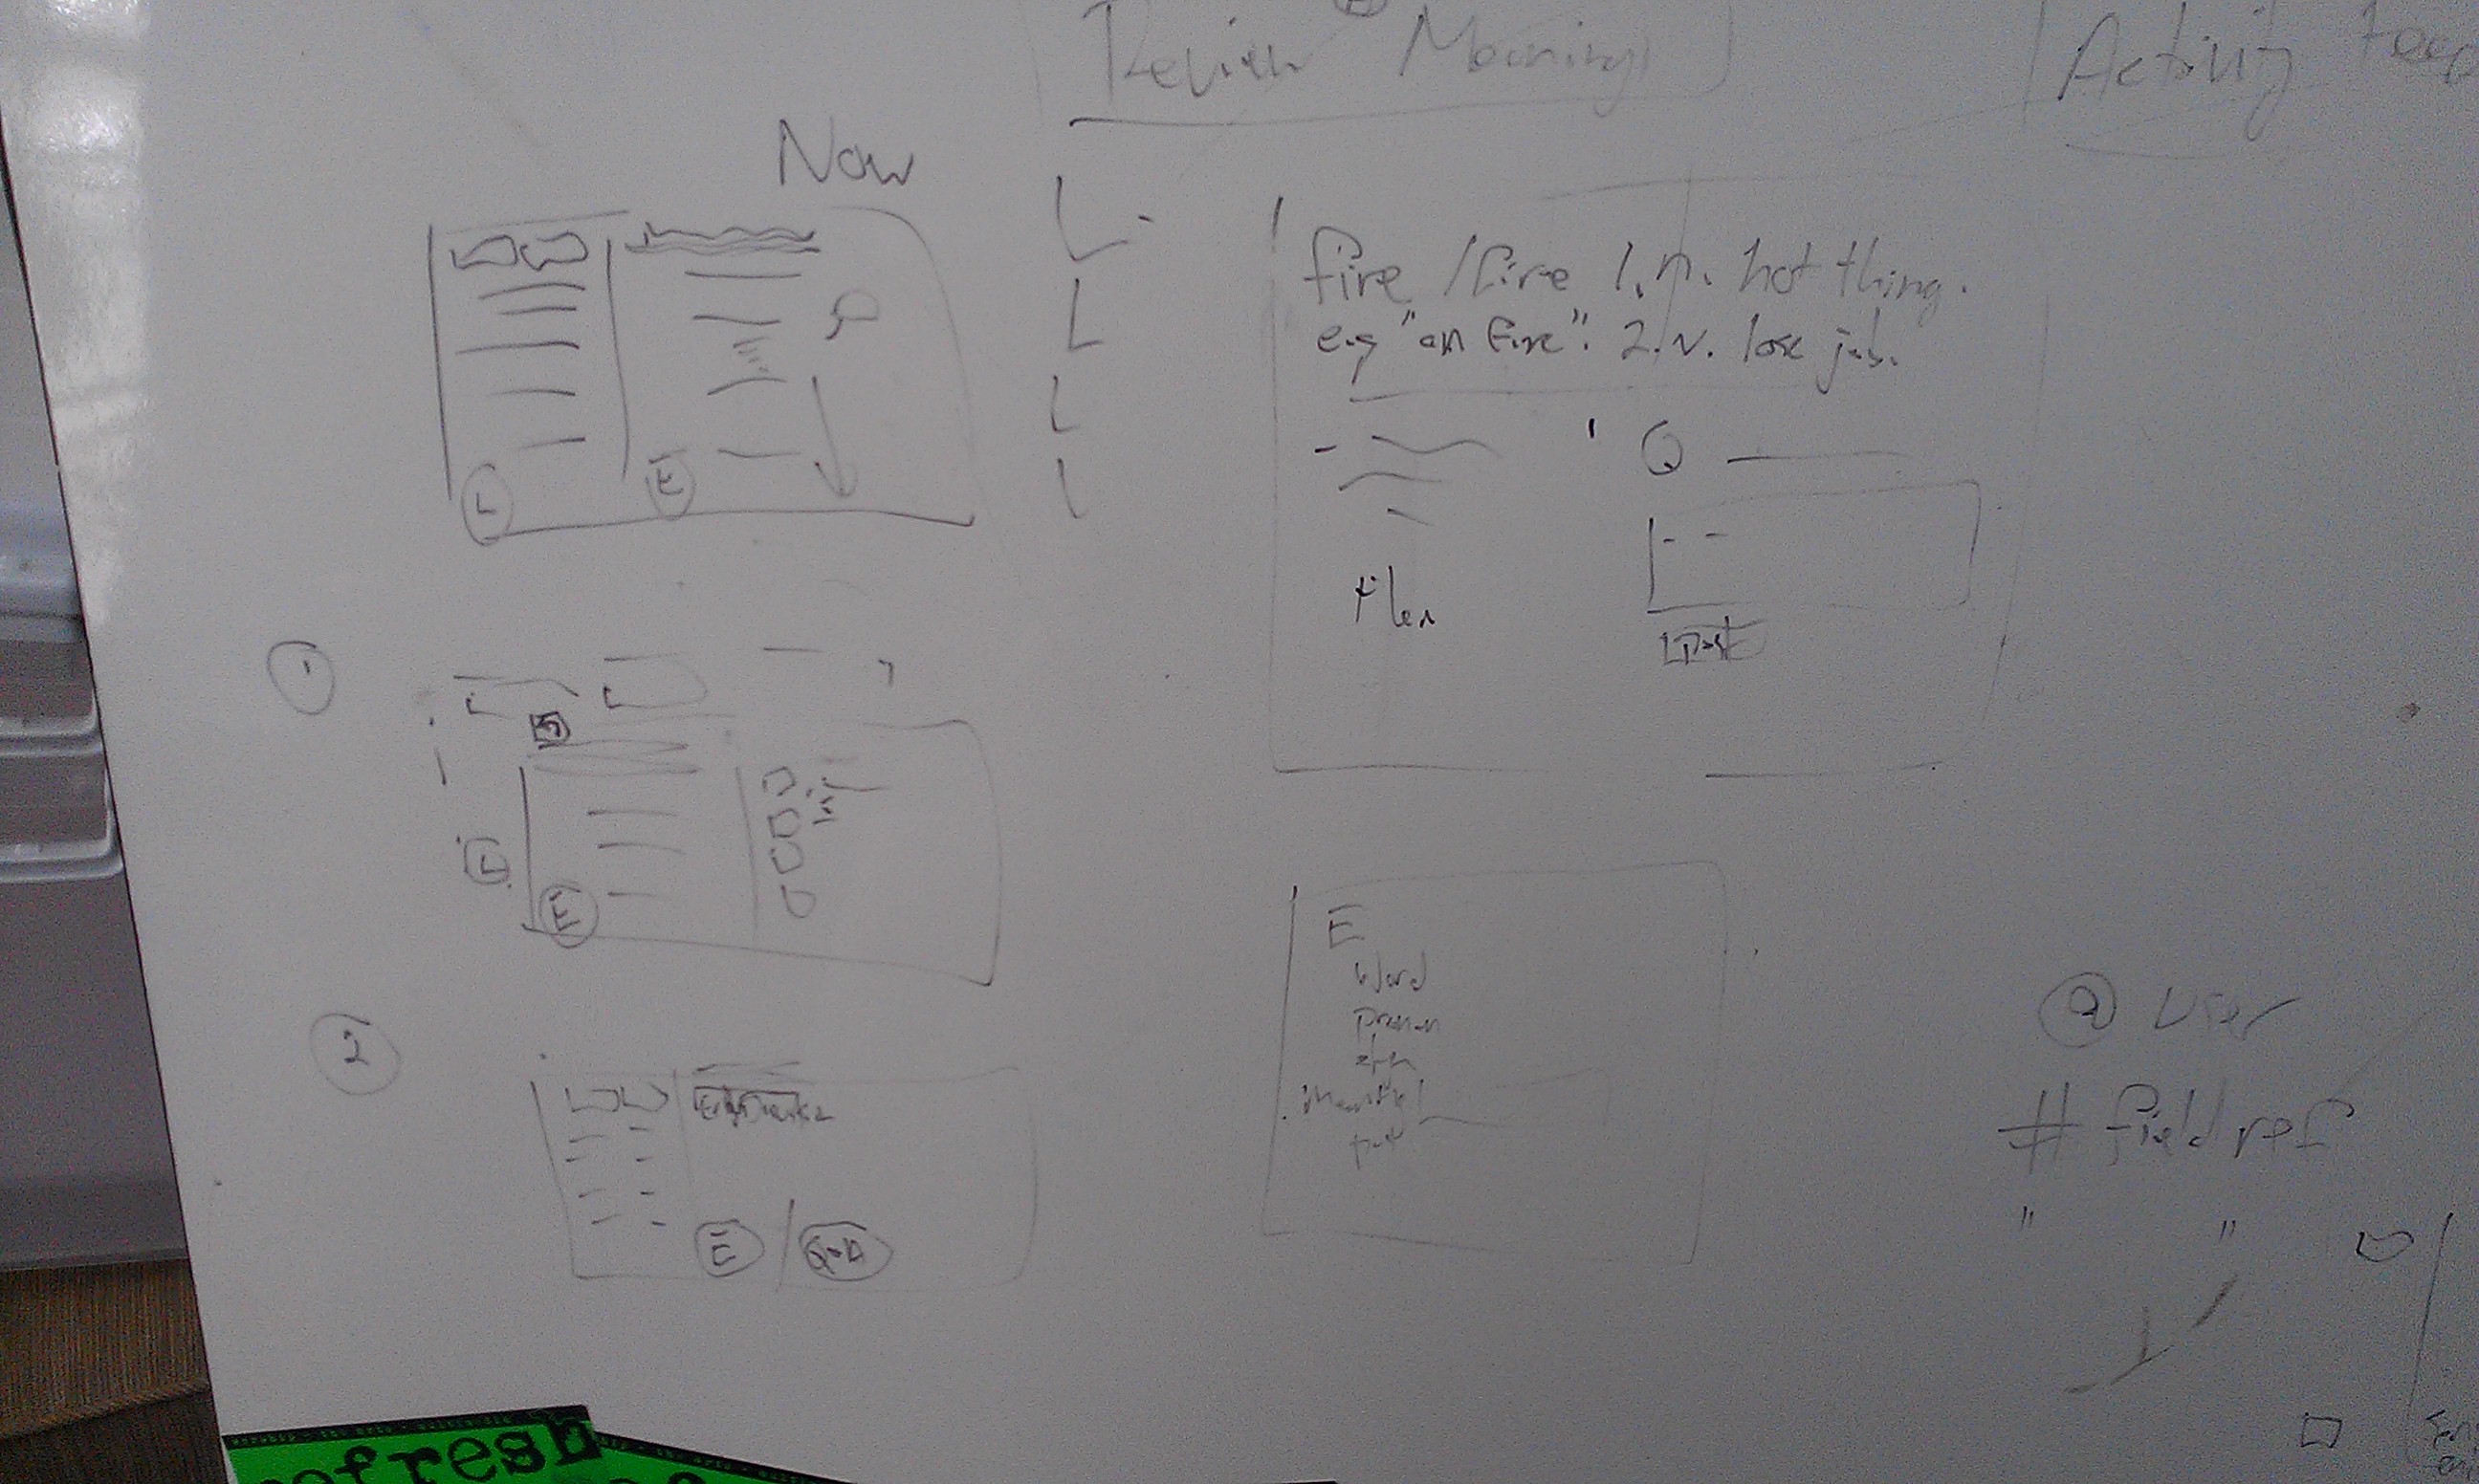 Review Meaning
Activity Feed
Now
L
E
fire /fire 1.n. hot thing.
e.g "on fire". 2.v. lose job.
Q
Post
1
L
E
2
E
Q+A
E
Word
Pronun
@ user
# field ref
" "
refresh